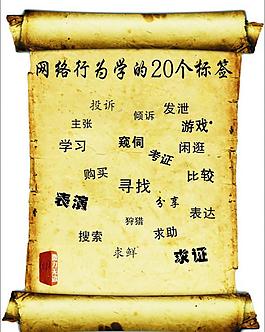 网络行为学的20个标签
投诉 倾诉 发泄
主张 窥伺 游戏
学习 考证 闲逛
购买 寻找 比较
表演 分享
狩猎 表达
搜索 求助
求鲜 求证